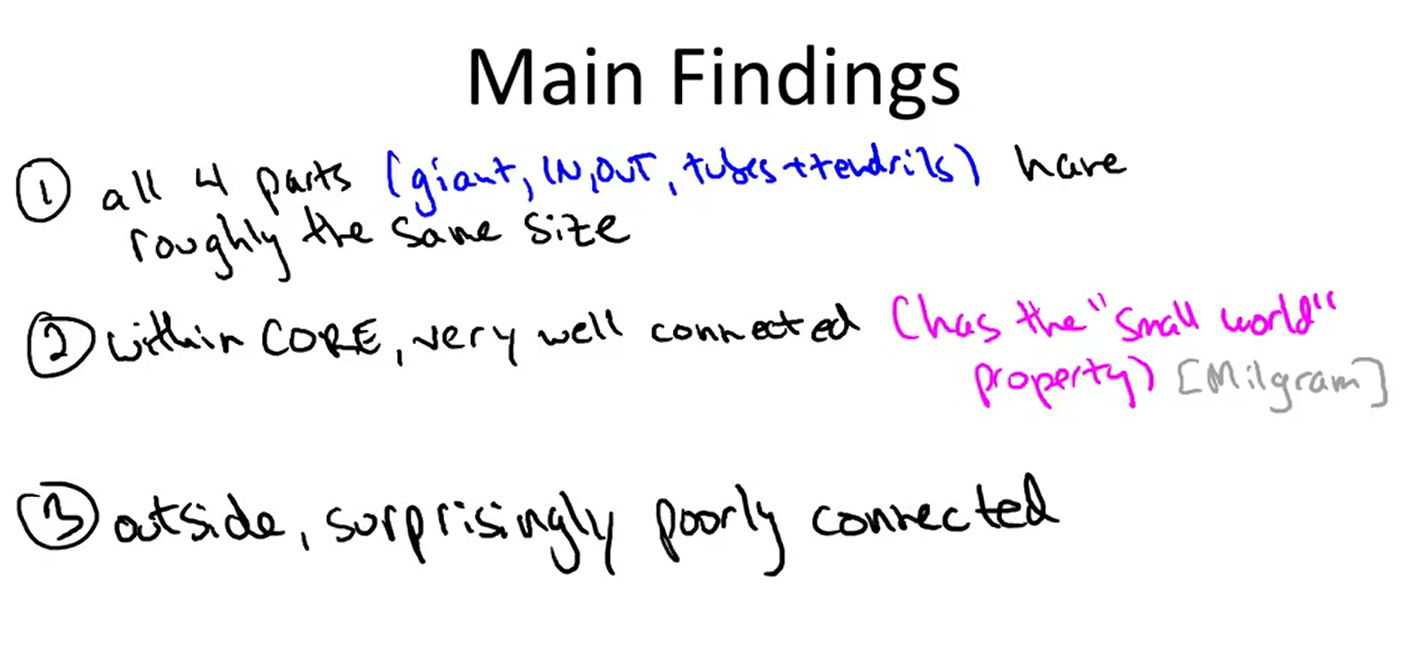 Main Findings
① all 4 parts (giant, IN, OUT, tubes + tendrils) have
roughly the same size
② within CORE, very well connected (has the "small world"
property) [Milgram]
③ outside, surprisingly poorly connected